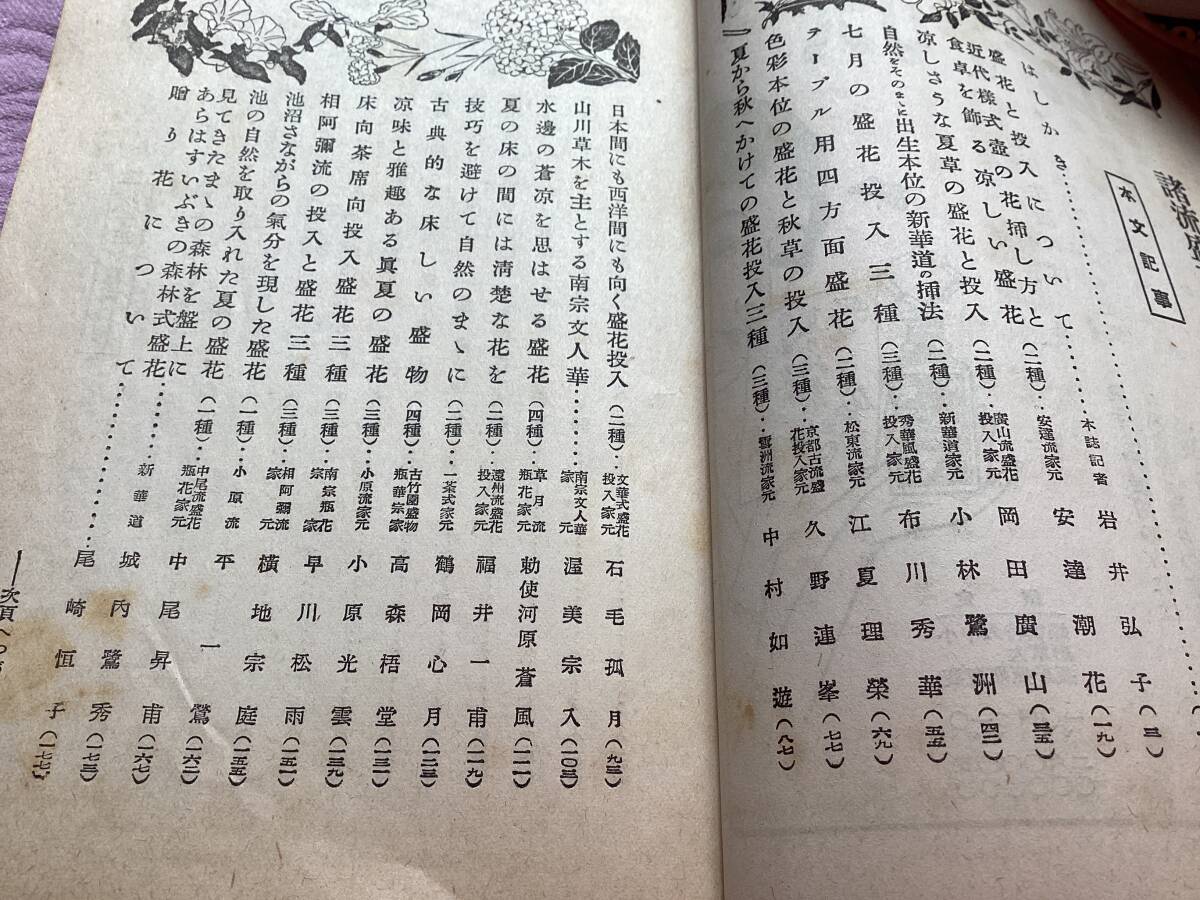 諸流盛
本文記事
はしがき
盛花と投入について……本誌記者 岩井弘子(三)
近代樣式壺の花挿し方と
食卓を飾る凉しい盛花(二種)‥安達流家元 安達潮花(一九)
凉しさうな夏草の盛花と投入(二種)‥廣山流盛花投入家元 岡田廣山(三五)
自然をそのまゝに出生本位の新華道の挿法(二種)‥新華道家元 小林鷺洲(四二)
七月の盛花投入三種(三種)‥秀華風盛花投入家元 布川秀華(五五)
テーブル用四方面盛花(二種)‥松東流家元 江夏理榮(六九)
色彩本位の盛花と秋草の投入(三種)‥京都古流盛花投入家元 久野連峯(七七)
夏から秋へかけての盛花投入三種(三種)‥雪洲流家元 中村如遊(八七)
日本間にも西洋間にも向く盛花投入(二種)‥文華式盛花投入家元 石毛孤月(九三)
山川草木を主とする南宗文人華……南宗文人華家元 渥美宗入(一〇三)
水邊の蒼凉を思はせる盛花(四種)‥草月流瓶花家元 勅使河原蒼風(一一一)
夏の床の間には淸楚な花を(二種)‥遠州流盛花投入家元 福井一甫(一一九)
技巧を避けて自然のまゝに(二種)‥一茶式家元 鶴岡心月(一二三)
古典的な床しい盛物(四種)‥古竹園盛物瓶華宗家 高森梧堂(一三一)
凉味と雅趣ある眞夏の盛花(三種)‥小原流家元 小原光雲(一三九)
床向茶席向投入盛花三種(三種)‥南宗瓶花宗家 早川松雨(一五一)
相阿彌流の投入と盛花三種(三種)‥相阿彌流家元 橫地宗庭(一五五)
池沼さながらの氣分を現した盛花(一種)‥小原流 平一鶯(一六二)
池の自然を取り入れた夏の盛花(一種)‥中尾流盛花瓶花家元 中尾昇甫(一六七)
見てきたまゝの森林を盤上に
あらはすいぶきの森林式盛花……新華道 城內鷺秀(一七三)
贈り花について……尾崎恒子(一七七)
―次頁へつ